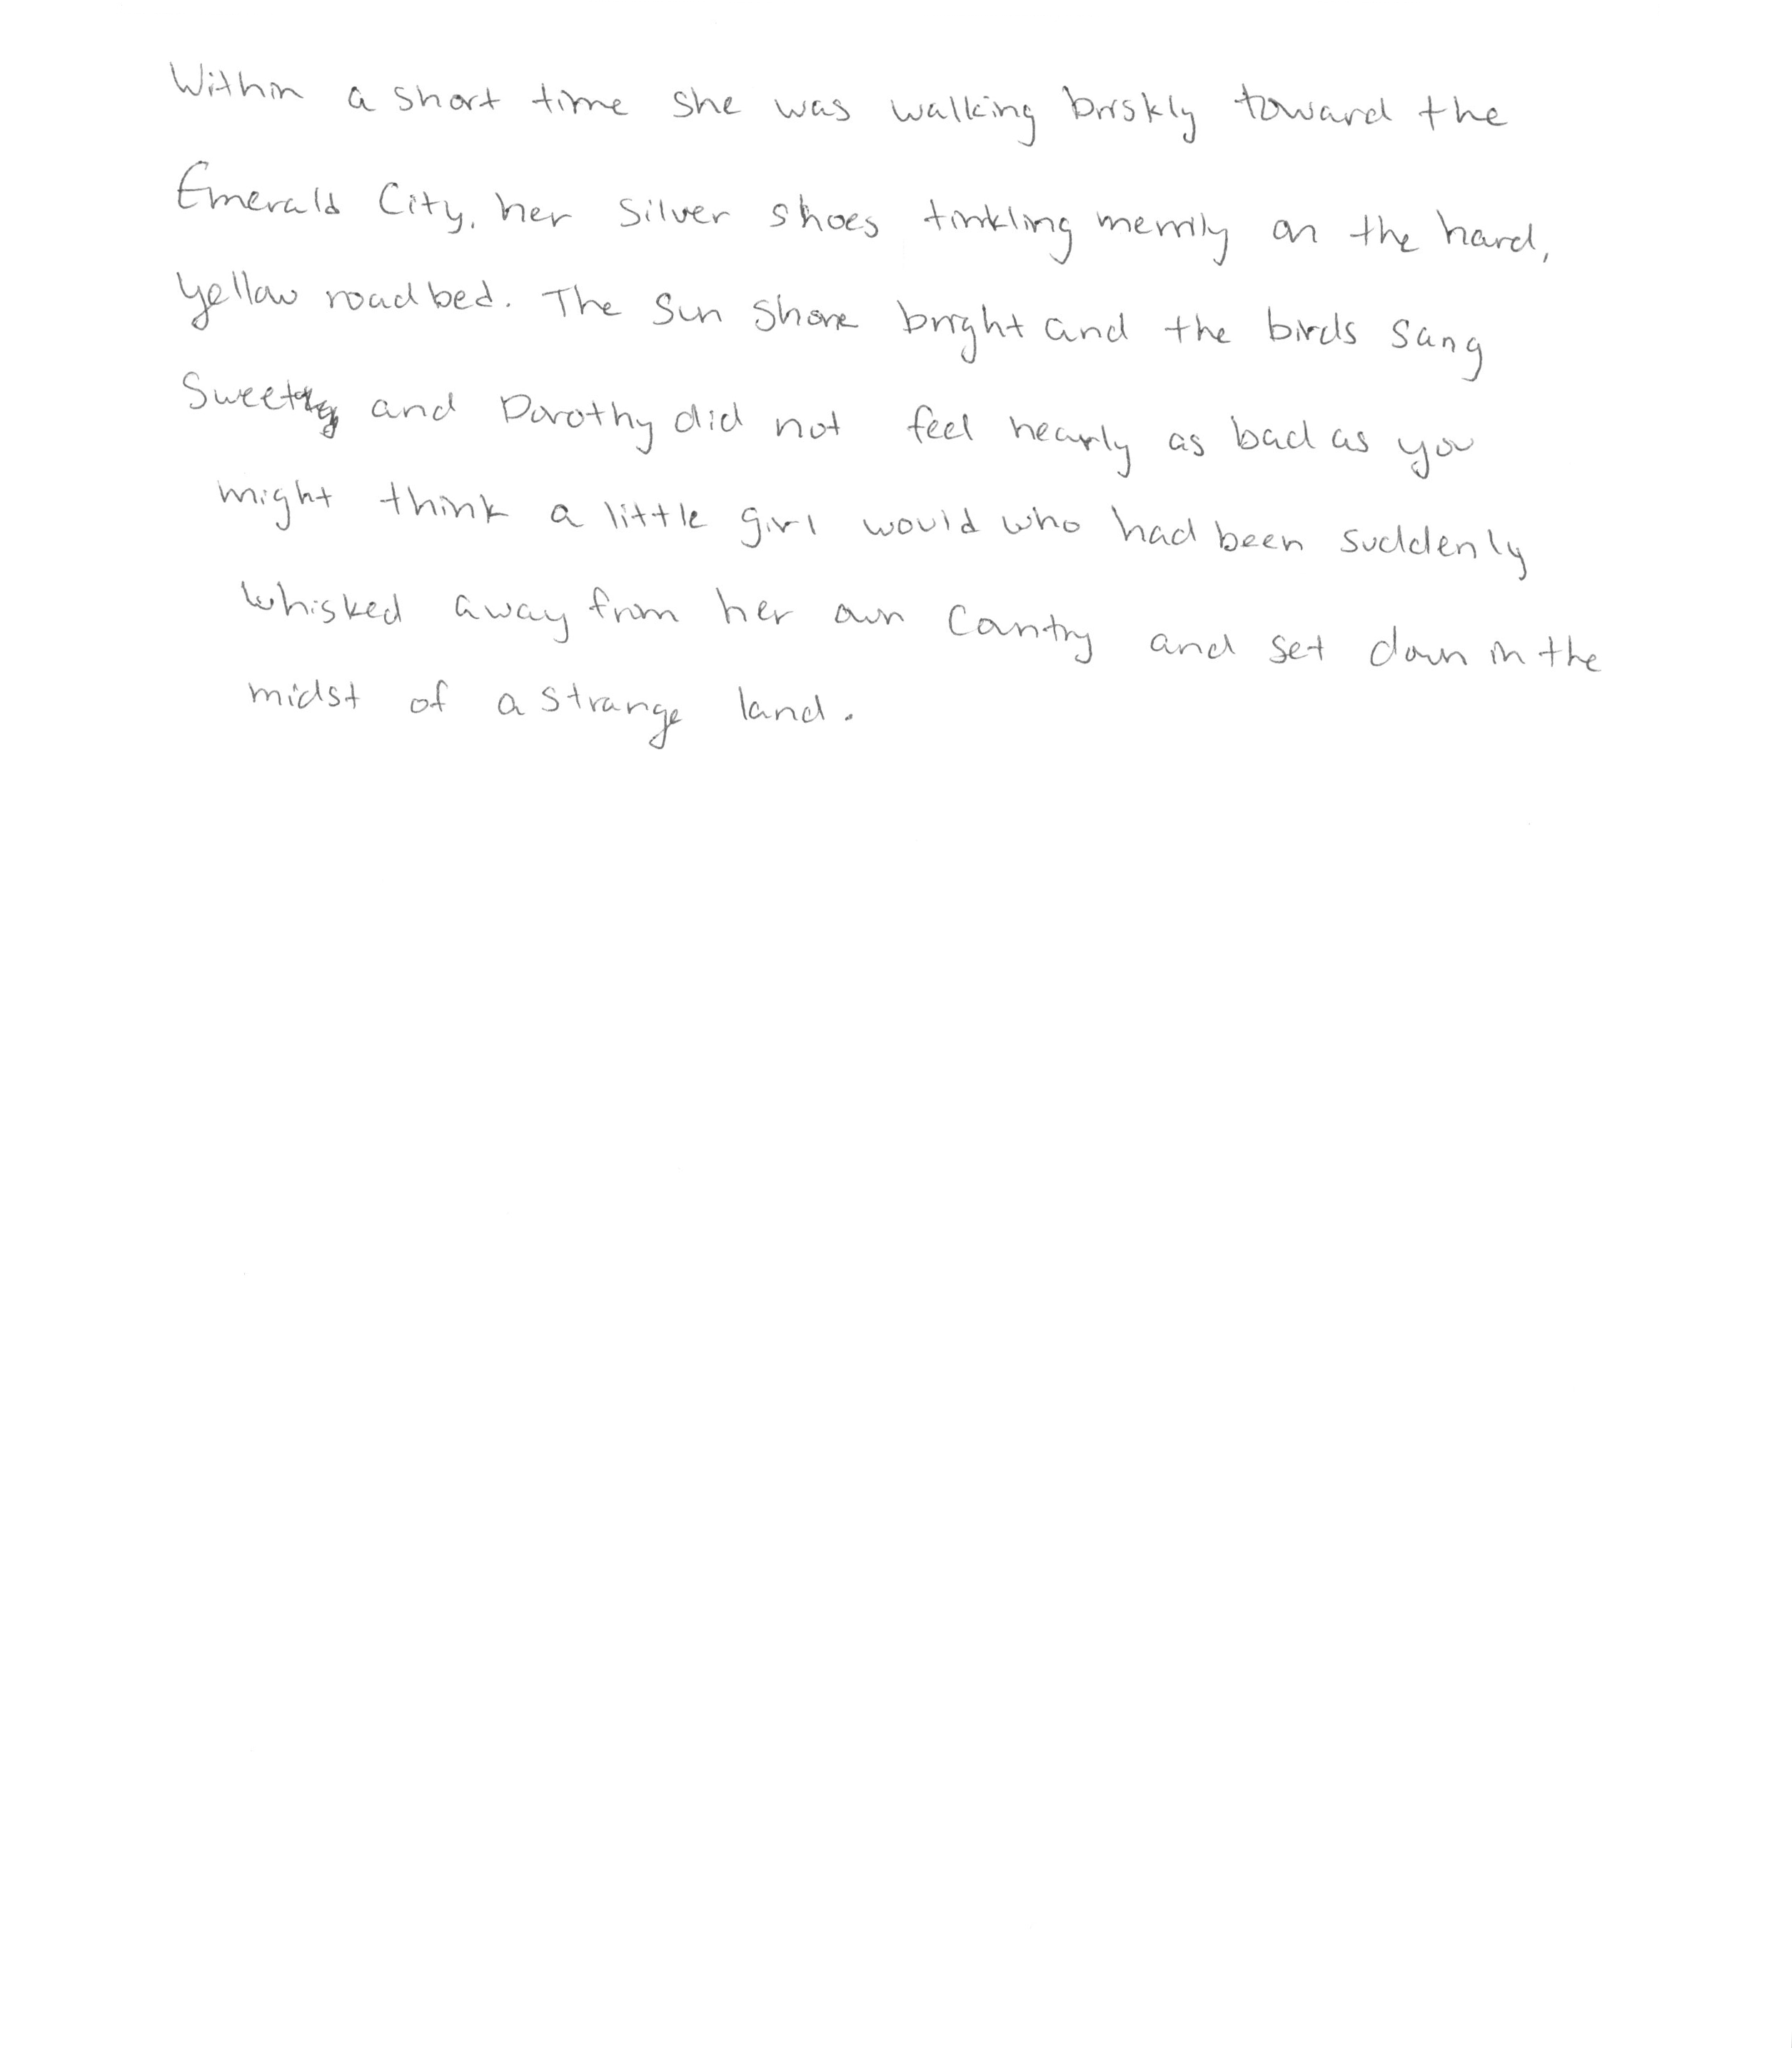 Within a short time she was walking briskly toward the
Emerald City, her silver shoes tinkling merrily on the hard,
yellow roadbed. The sun shone bright and the birds sang
sweetly and Dorothy did not feel nearly as bad as you
might think a little girl would who had been suddenly
whisked away from her own country and set down in the
midst of a strange land.